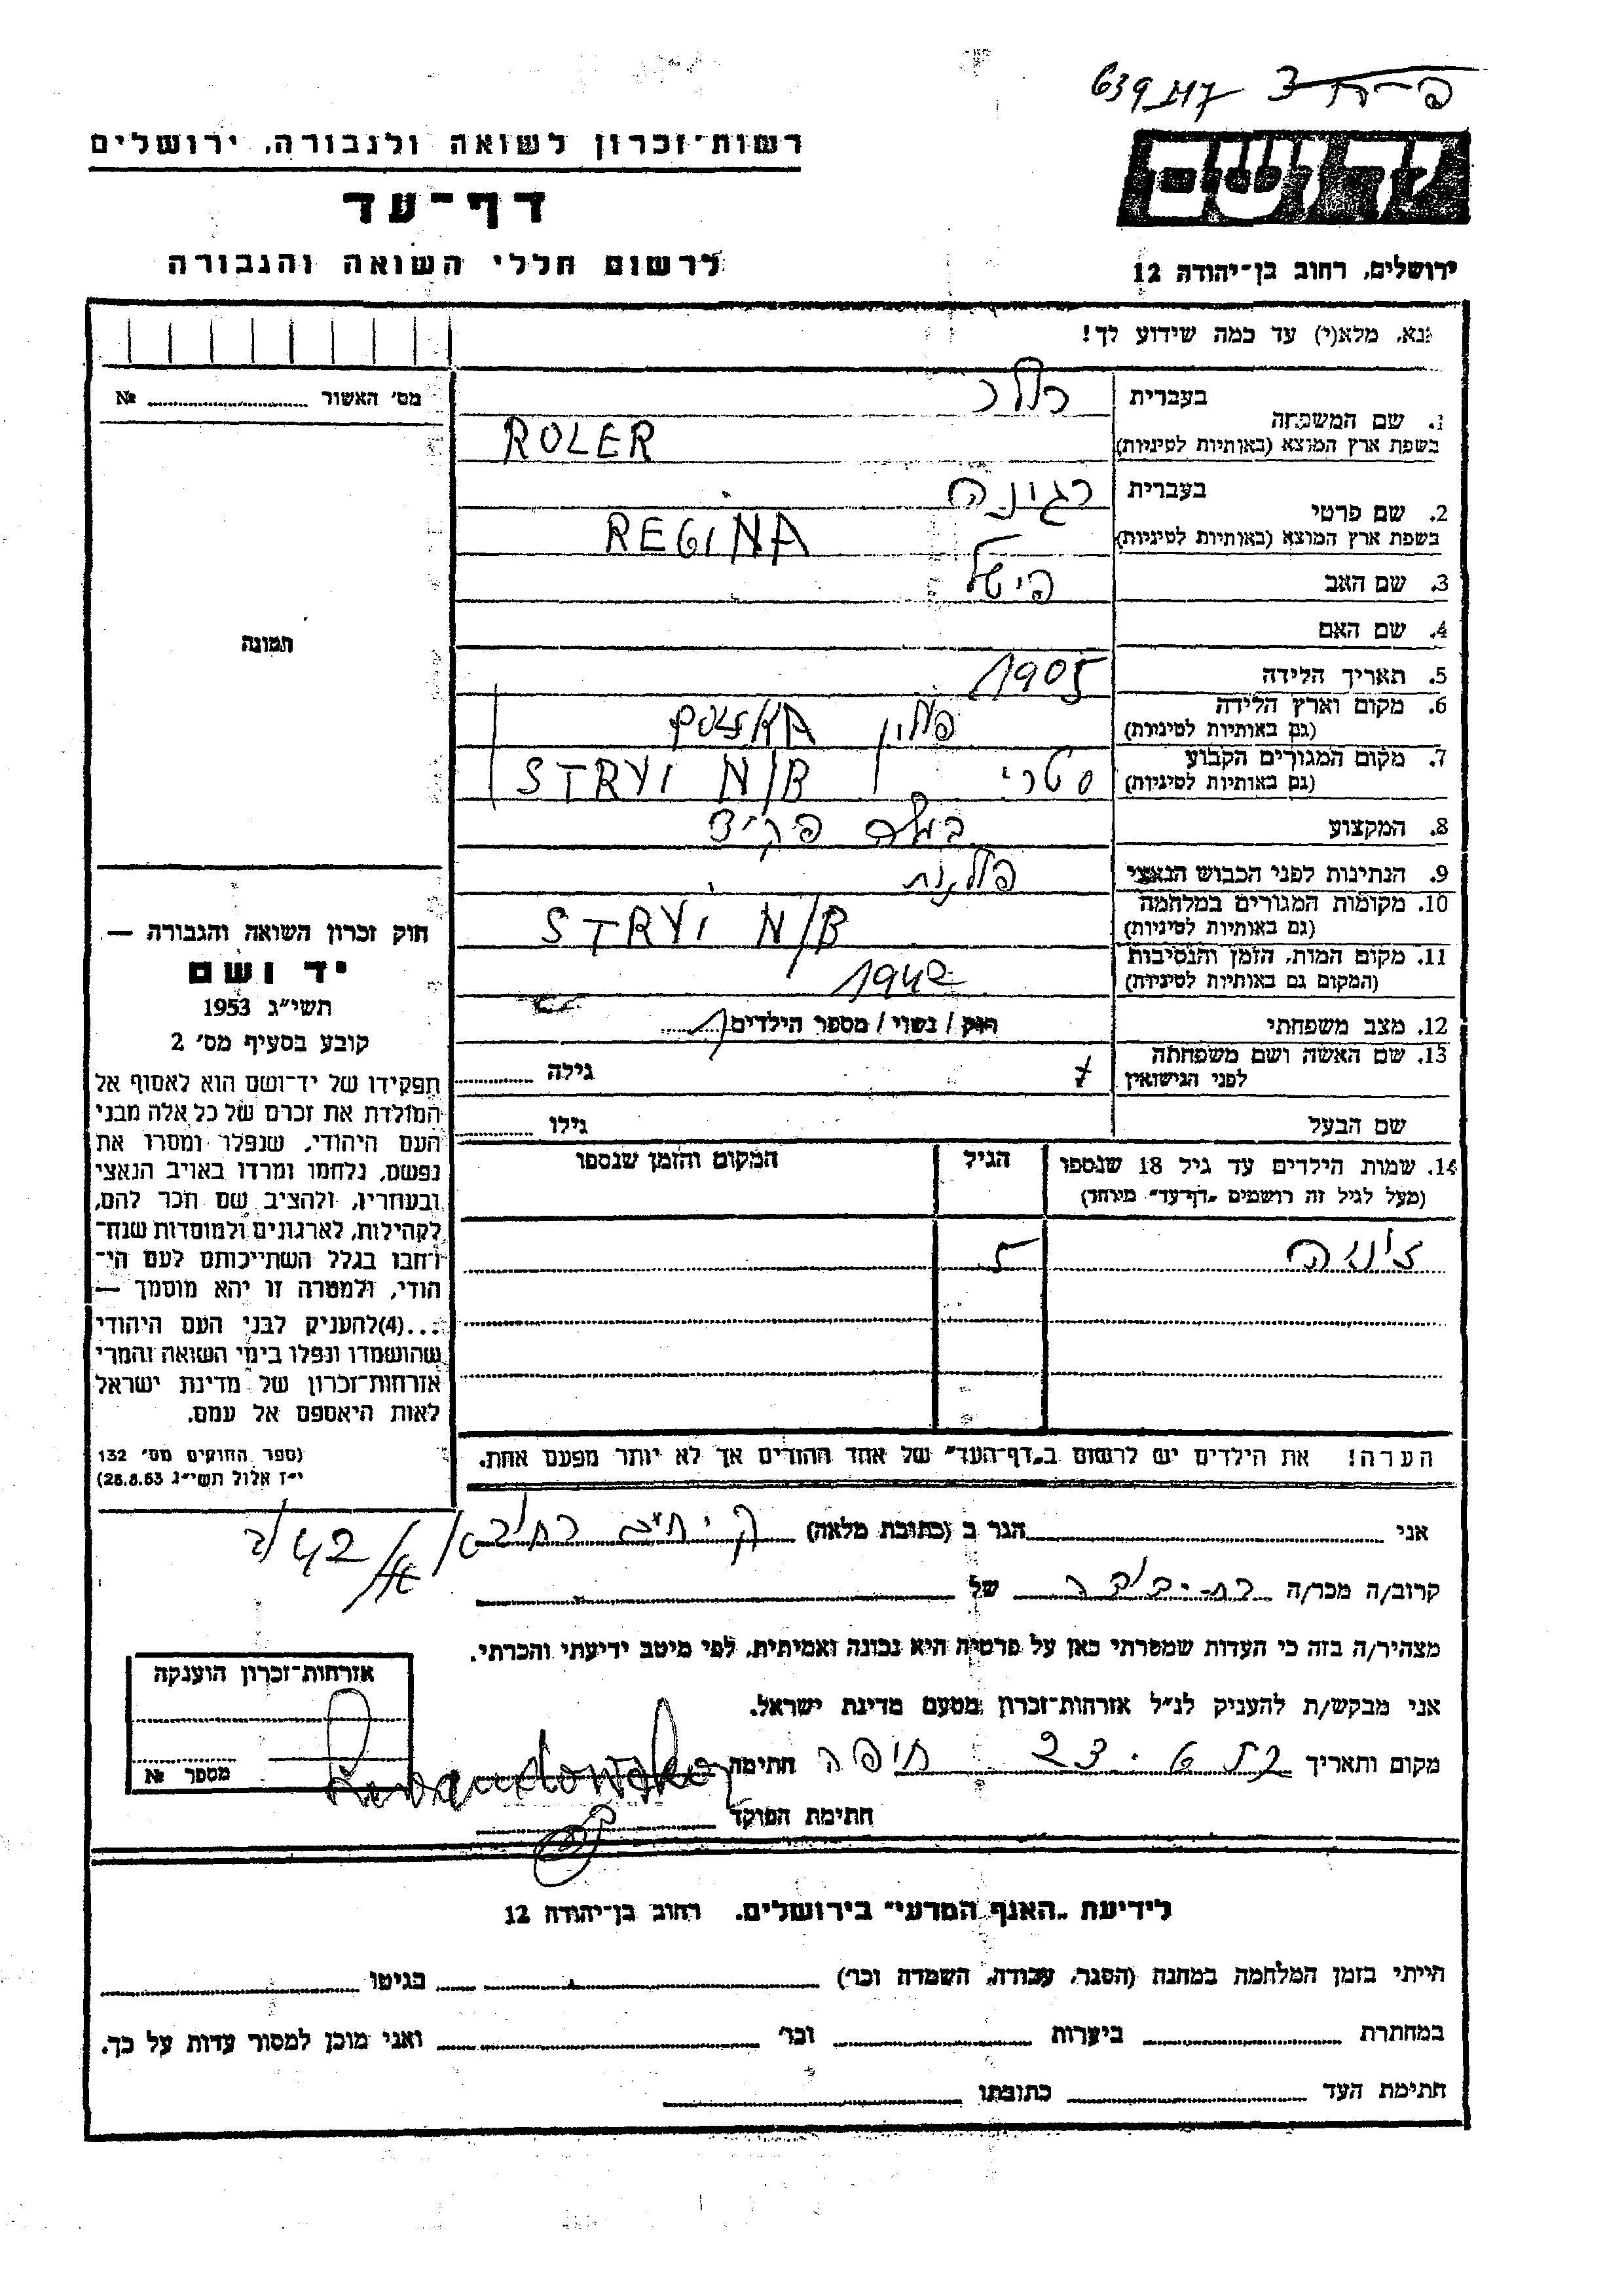 639 117
רשות-זכרון לשואה ולגבורה, ירושלים
ידושם
דף-עד
לרשום חללי השואה והגבורה
ירושלים, רחוב בן-יהודה 12
נא, מלא(י) עד כמה שידוע לך!
מס' האשור № 
1. שם המשפחה
בעברית רולר
בשפת ארץ המוצא (באותיות לטיניות) ROLER
2. שם פרטי
בעברית רגינה
בשפת ארץ המוצא (באותיות לטיניות) REGINA
3. שם האב פישל
4. שם האם
תמונה
5. תאריך הלידה 1905
6. מקום וארץ הלידה
(גם באותיות לטיניות) פולין POLSKA
7. מקום המגורים הקבוע
(גם באותיות לטיניות) סטרי STRYI N/B
8. המקצוע
9. הנתינות לפני הכבוש הנאצי פולנית
10. מקומות המגורים במלחמה
(גם באותיות לטיניות) STRYI N/B
11. מקום המות, הזמן והנסיבות
(המקום גם באותיות לטיניות) 1942
12. מצב משפחתי רווק / נשוי / מספר הילדים 1
13. שם האשה ושם משפחתה
לפני הנישואין גילה
שם הבעל גילו
14. שמות הילדים עד גיל 18 שנספו הגיל המקום והזמן שנספו
(מעל לגיל זה רושמים "דף-עד" מיוחד)
5
הערה! את הילדים יש לרשום ב"דף-העד" של אחד ההורים אך לא יותר מפעם אחת.
חוק זכרון השואה והגבורה —
יד ושם
תשי"ג 1953
קובע בסעיף מס' 2
תפקידו של יד-ושם הוא לאסוף אל
המולדת את זכרם של כל אלה מבני
העם היהודי, שנפלו ומסרו את
נפשם, נלחמו ומרדו באויב הנאצי
ובעוזריו, ולהציב שם וזכר להם,
לקהילות, לארגונים ולמוסדות שנח-
רבו בגלל השתייכותם לעם הי-
הודי, ולמטרה זו יהא מוסמך —
...(4)להעניק לבני העם היהודי
שהושמדו ונפלו בימי השואה והמרי
אזרחות-זכרון של מדינת ישראל
לאות היאספם אל עמם.
(ספר החוקים מס' 132
י"ז אלול תשי"ג 28.8.53)
אני הגר ב (כתובת מלאה) ק. חיים 42/
קרוב/ה מכר/ה של
מצהיר/ה בזה כי העדות שמסרתי כאן על פרטיה היא נכונה ואמיתית, לפי מיטב ידיעתי והכרתי.
אני מבקש/ת להעניק לנ"ל אזרחות-זכרון מטעם מדינת ישראל.
מקום ותאריך חיפה חתימה
חתימת הפוקד
אזרחות-זכרון הוענקה
מספר №
לידיעת "האגף המדעי" בירושלים, רחוב בן-יהודה 12
הייתי בזמן המלחמה במחנה (הסגר, עבודה, השמדה וכו') בגיטו
במחתרת ביערות וכו' ואני מוכן למסור עדות על כך.
חתימת העד כתובתו